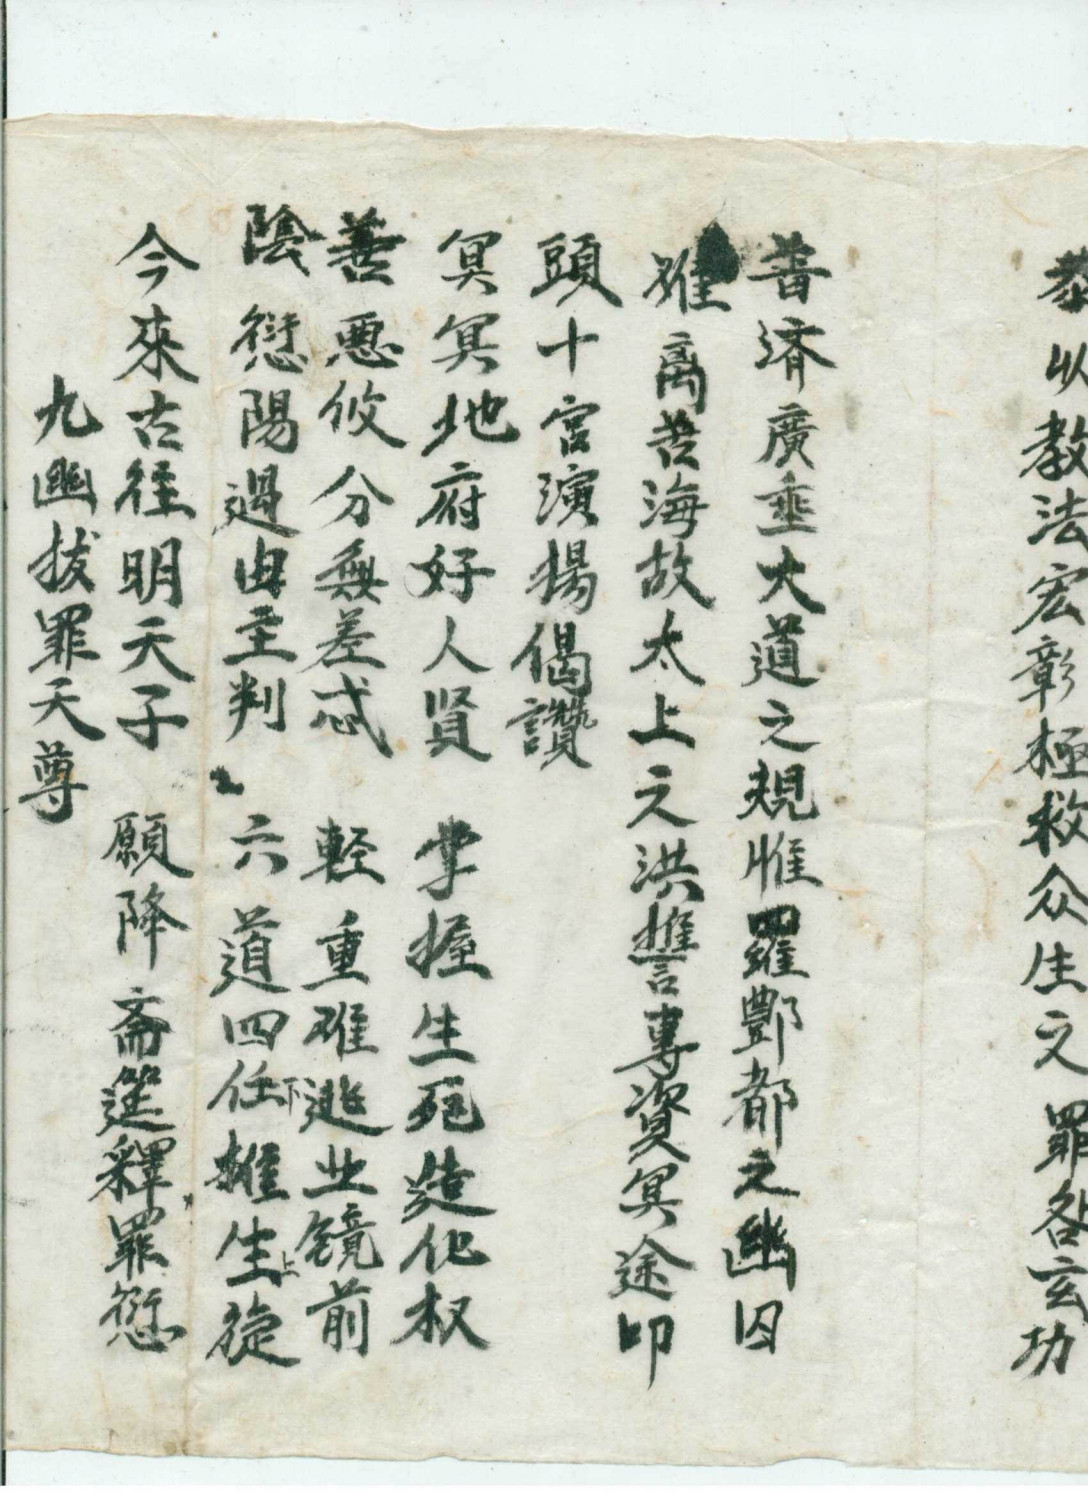 恭以教法宏彰極救众生之罪咎玄功
普济廣垂大道之規惟羅酆都之幽囚
难离苦海故太上之洪誓專資冥途叩
頭十宮演揚偈讚
冥冥地府好人賢 掌握生死造化权
善恶攸分無差忒 軽重难逃业镜前
陰愆陽過由主判 六道四任下推生上旋
今來古徃明天子 願降斋筵釋罪愆
九幽拔罪天尊